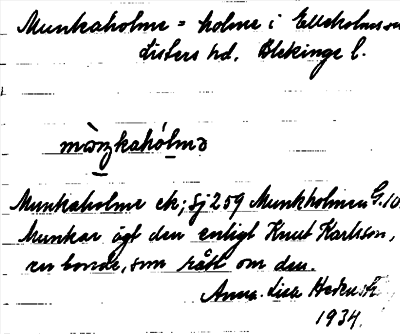 Munkaholme = holme i Elleholms sn
Listers hd. Blekinge l.
Munkaholme ek; Sj 259 Munkholmen G. 10
Munkar ägt den enligt Knut Karlsson,
en bonde, som rått om den.
Anna-Lisa
1934.